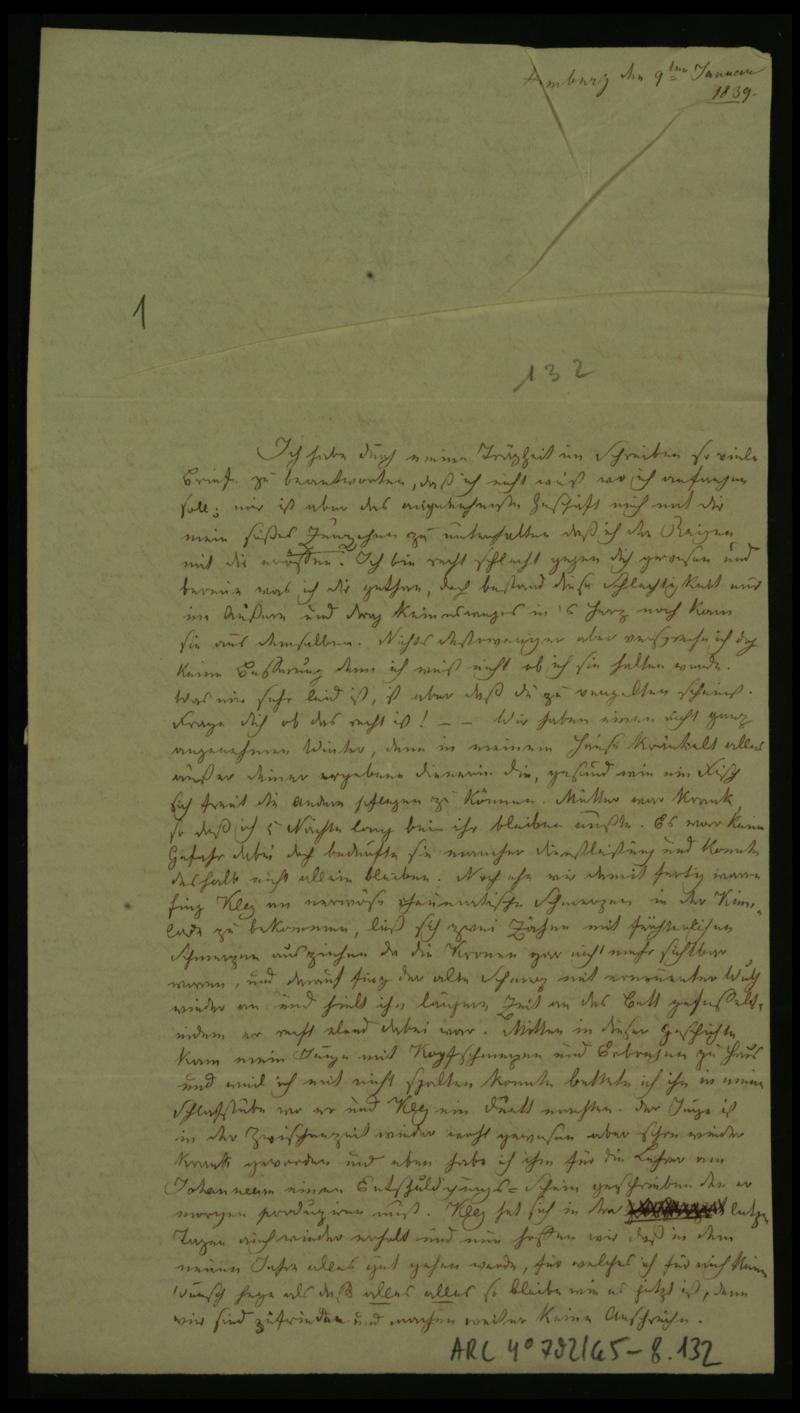 Hamburg den 9ten Januar
1839.
1
132
Ich habe durch meine Trägheit im Schreiben so viele
Briefe zu beantworten, daß ich nicht weiß wo ich anfangen
soll; mir ist aber das angenehmste Geschäft mich mit dir
mein süßes zu unterhalten daß ich den Reigen
mit dir eröffne. Ich bin recht schlecht gegen dich gewesen und
bereue was ich dir gethan, doch bestand diese Schlechtigkeit nur
im Äußern und drang keineswegs in's Herz noch kam
sie aus demselben. Nichts destoweniger aber verspreche ich doch
keine Besserung denn ich weiß nicht ob ich sie halten werde.
Was mir sehr leid ist, ist aber daß du zu vergelten scheinst.
Frage dich ob das recht ist! – – Wir haben einen nicht ganz
angenehmen Winter, denn in meinem Hause kränkelt alles
außer deiner ergebenen Dienerin die, gesund wie ein Fisch
sich freut die andern pflegen zu können. Mutter war krank
so daß ich 5 Nächte lang bei ihr bleiben mußte. Es war keine
Gefahr dabei doch bedurfte sie mancher Dienstleistung und konnte
deshalb nicht allein bleiben. Noch ehe wir damit fertig waren
fing Kley an nervös rheumatische Schmerzen in der Kinn-
lade zu bekommen, ließ sich zwei Zähne mit fürchterlichen
Schmerzen ausziehen da die Kronen gar nicht mehr sichtbar
waren, und darauf fing der alte Schmerz mit erneuerter Wuth
wieder an und hielt ihn längere Zeit an das Bett gefesselt,
indem er recht elend dabei war. Mitten in dieser Geschichte
kam mein Junge mit Kopfschmerzen und Erbrechen zu Haus
und weil ich mich nicht spalten konnte bettete ich ihn in meine
Schlafstube wo er und Kley ein Duett machten. Der Junge ist
in der Zwischenzeit wieder wohl gewesen aber schon wieder
krank geworden und eben habe ich ihm für die Lehrer am
Johanneum einen Entschuldigungs-Schein geschrieben den er
morgen produziren muß. Kley hat sich in den letzten
Tagen auch wieder erholt und nun hoffen wir daß in dem
neuen Jahre alles gut gehen werde, für welches ich für mich keinen
Wunsch hege als daß alles alles so bleibe wie es jetzt ist, denn
wir sind zufrieden und machen weiter keine Ansprüche.
ARC 4° 792/G5-8.132